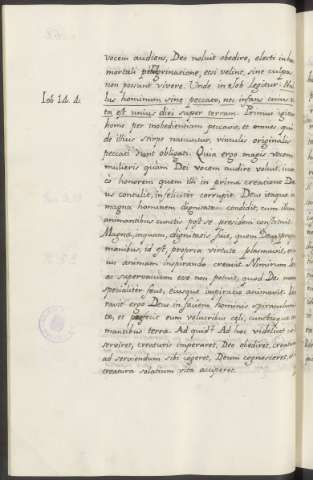 vocem audiens, Deo noluit obedire, electi in hac
mortali peregrinatione, etsi velint, sine culpa
non possunt vivere. Unde in Iob legitur: Nul
Iob 14. 4.
lus hominum sine peccato, nec infans cuius vi
ta est unius diei super terram. Primus igitur
homo per inobedientiam peccavit, et omnes qui
de illius stirpe nascuntur, vinculis originalis
peccati sunt obligati. Quia ergo magis vocem
mulieris quam Dei vocem audire voluit,
honorem quem illi in prima creatione De
us contulit, infeliciter corrupit. Deus itaque
magna hominem dignitatem condidit, cum illum
animantibus cunctis post se praesidere constituit.
Magna, inquam, dignitatis fuit, quem Deus propriis
manibus, id est, propria virtute plasmavit,
animam inspirando creavit. Nimirum
ac supervacuum esse non potuit, quod Deus manu
specialiter fecit, eiusque inspiratio animavit.
ravit ergo Deus in faciem hominis spiraculum
et praefecit eum volucribus caeli, cunctisque
mantibus terrae. Ad quid? Ad hoc videlicet
serviret, creaturis imperaret, Deo obediret, creaturam
ad serviendum sibi cogeret, Deum cognosceret,
creatura solatium vitae acciperet.